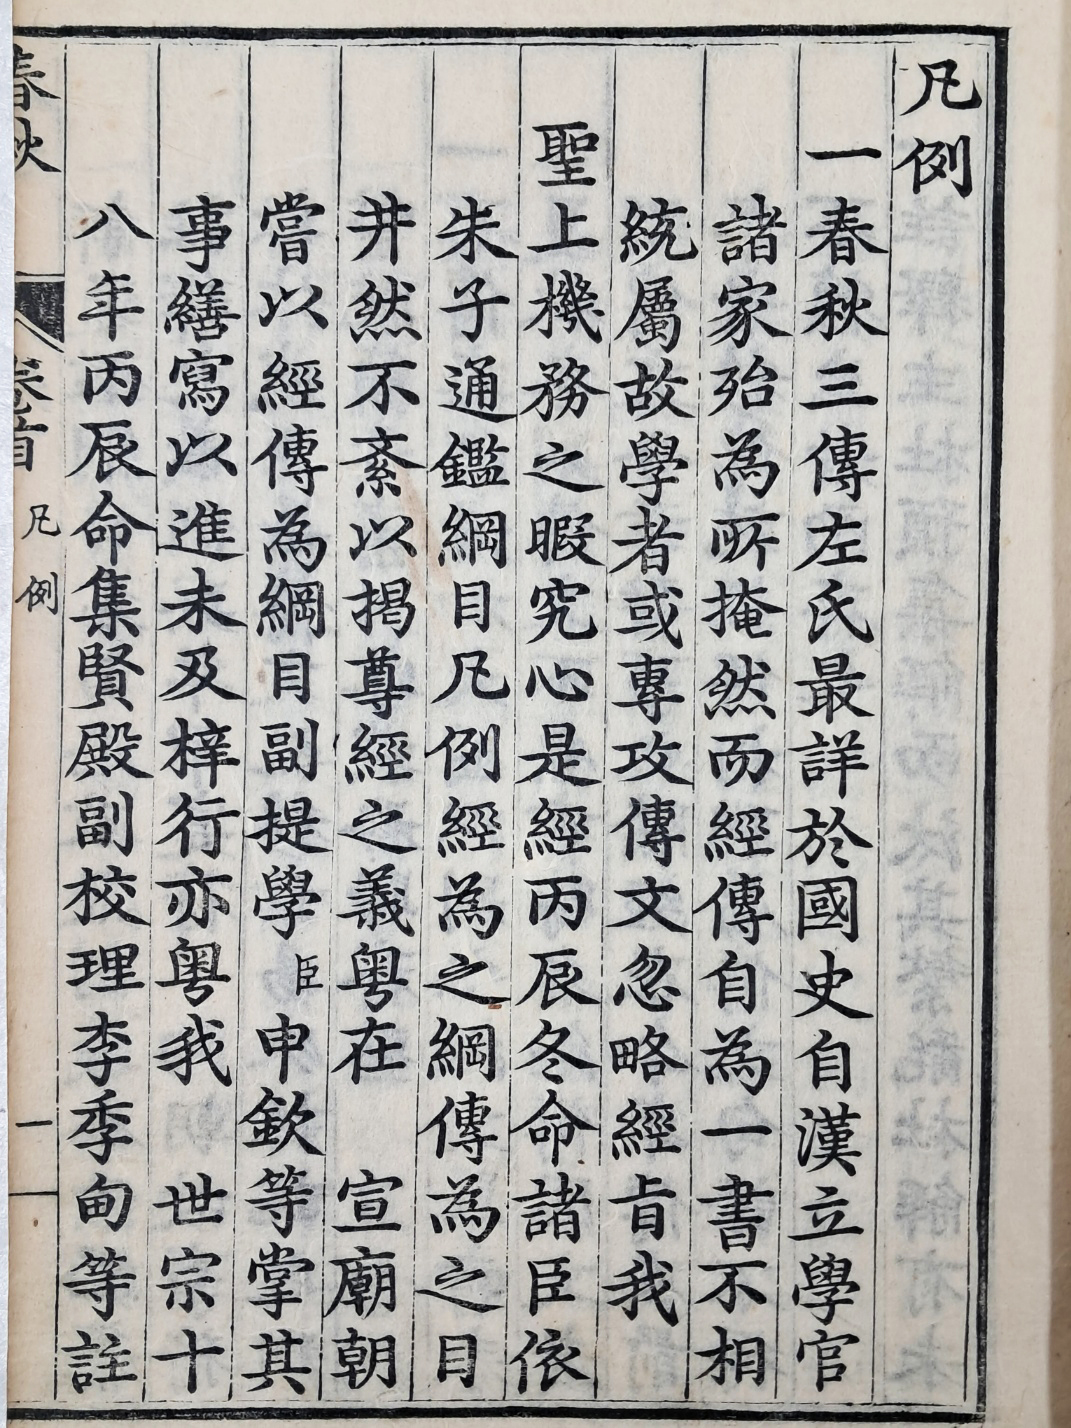 凡例
一春秋三傳左氏最詳於國史自漢立學官
諸家殆為所掩然而經傳自為一書不相
統屬故學者或專攻傳文忽略經旨我
聖上機務之暇究心是經丙辰冬命諸臣依
朱子通鑑綱目凡例經為之綱傳為之目
井然不紊以揭尊經之義粤在 宣廟朝
嘗以經傳為綱目副提學臣申欽等掌其
事繕寫以進未及梓行亦粤我 世宗十
八年丙辰命集賢殿副校理李季甸等註
春秋 卷首 凡例 一